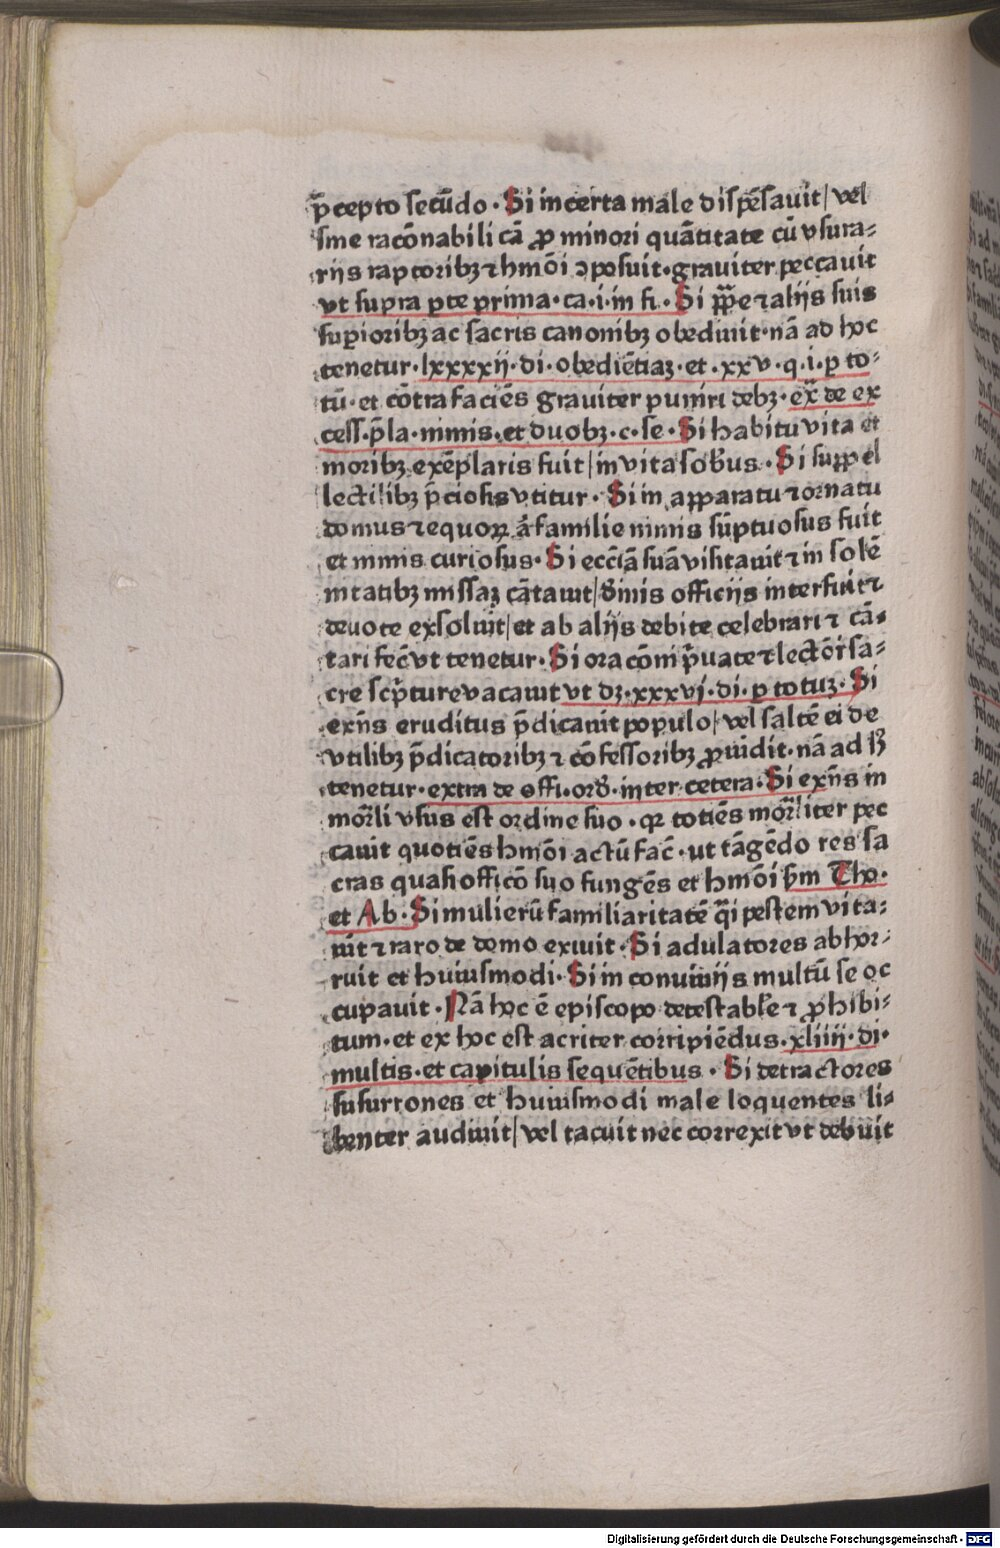 p̄cepto secūdo · Si incerta male dispēsauit / vel
sine racōnabili cā ꝓ minori quātitate cū vsura⸗
rijs raptoribꝫ ⁊ hmōi ↄposuit · grauiter peccauit
vt supra ꝑte prima · ca · i · in fi · Si ꝓp̄e ⁊ alijs suis
supioribꝫ ac sacris canonibꝫ obediuit · nā ad hoc
tenetur · lxxxxij · di · obediētiaꝫ · et · xxv · q · i · ꝑ to⸗
tū · et cōtra faciēs grauiter puniri debꝫ · ex̄ de ex
cess · p̄la · nimis · et duobꝫ · c · se · Si habitu vita et
moribꝫ exēplaris fuit / in vita sobr̄us · Si suꝑpel
lectilibꝫ p̄ciosis vtitur · Si in apparatu ⁊ ornatu
domus ⁊ equoꝝ a͛ familie nimis sūptuosus fuit
et nimis curiosus · Si eccīā suā visitauit ⁊ in solē
nitatibꝫ missaꝫ cātauit / diuīnis officijs interfuit ⁊
deuote exsoluit / et ab alijs debite celebrari ⁊ cā⸗
tari fec̄ vt tenetur · Si oracōni p̄uate ⁊ lectōi sa⸗
cre scp̄ture vacauit vt dꝫ · xxxvj · di · ꝑ totuꝫ · Si
exn̄s eruditus p̄dicauit populo / vel saltē ei de
vtilibꝫ p̄dicatoribꝫ ⁊ cōfessoribꝫ ꝓuidit · nā ad ħ
tenetur · extra de offi · ord̄ · inter cetera · Si exn̄s in
mōrli vsus est ordine suo · qꝛ totiēs mōrliter pec
cauit quotiēs hmōi actū fac̄ · ut tāgēdo res sa
cras quasi officō suo fungēs et hmōi sm̄ Tho ·
et Ab · Si mulierū familiaritatē q̄i pestem vita⸗
uit ⁊ raro de domo exiuit · Si adulatores abhor⸗
ruit et huiusmodi · Si in conuiuijs multū se oc
cupauit · Nā hoc ē episcopo detestabl̄e ⁊ ꝓhibi⸗
tum · et ex hoc est acriter corripiēdus · xliiij · di ·
multis · et capitulis sequētibus · Si detractores
susurrones et huiusmodi male loquentes li⸗
benter audiuit / vel tacuit nec correxit vt debuit
Digitalisierung gefördert durch die Deutsche Forschungsgemeinschaft · DFG